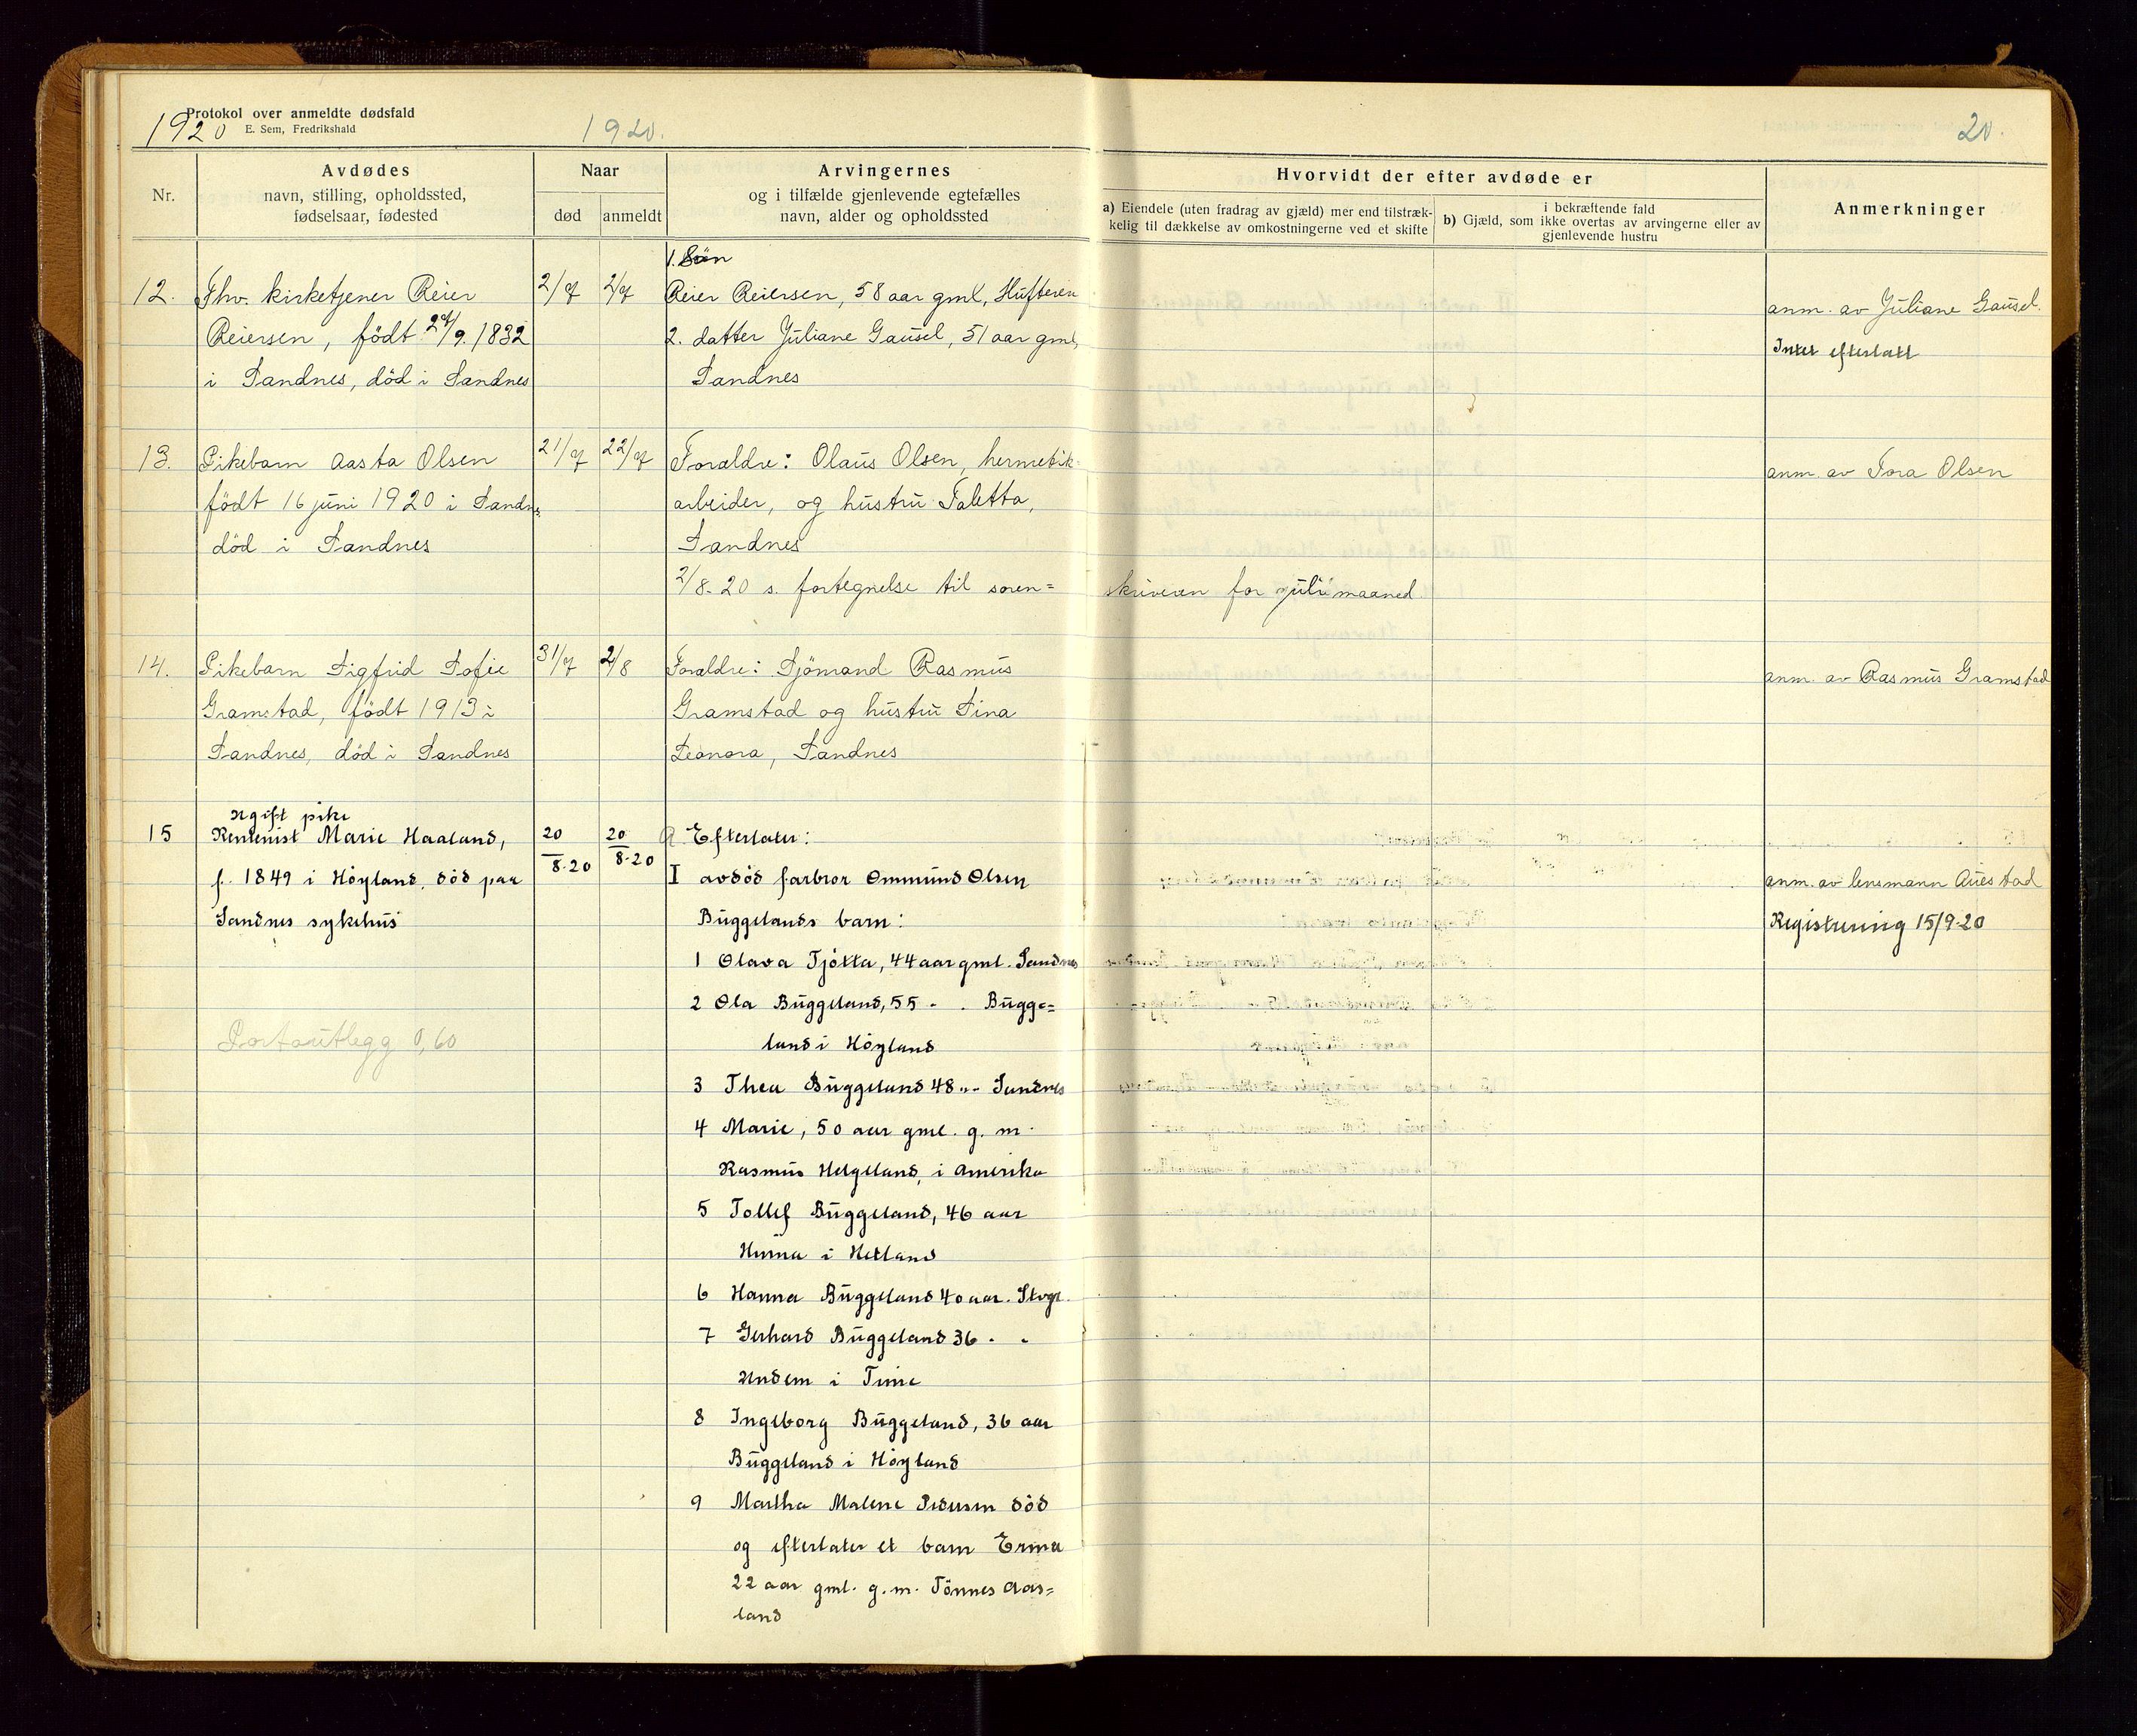 Protokol over anmeldte dødsfald
E. Sem, Fredrikshald
1920
1920.
20.
Nr.
Avdødes
navn, stilling, opholdssted,
fødselsaar, fødested
Naar
død
anmeldt
Arvingernes
og i tilfælde gjenlevende egtefælles
navn, alder og opholdssted
Hvorvidt der efter avdøde er
a) Eiendele (uten fradrag av gjæld) mer end tilstræk-
kelig til dækkelse av omkostningerne ved et skifte
i bekræftende fald
b) Gjæld, som ikke overtas av arvingerne eller av
gjenlevende hustru
Anmerkninger
1. Søn
12. Fhv. kirketjener Reier 2/7 2/7 Reier Reiersen, 58 aar gml, anm. av Juliane Gausel.
Reiersen, født 27/9. 1832 2. datter Juliane Gausel, 51 aar gml, Intet efterlatt
i Sandnes, död i Sandnes Sandnes
13. Pikebarn Aasta Olsen 21/7 22/7 Forældre: Olaus Olsen, hermetik- anm. av Tora Olsen
født 16 juni 1920 i Sandnes arbeider, og hustru Taletta,
död i Sandnes Sandnes
2/8-20 s. fortegnelse til soren= skriveren for juli maaned
14. Pikebarn Sigfrid Sofie 31/7 2/8 Forældre: Sjömand Rasmus anm. av Rasmus Gramstad
Gramstad, født 1913 i Gramstad og hustru Sina
Sandnes, död i Sandnes Leonora, Sandnes
ugift pike
15 Rentenist Marie Haaland, 20/8-20 20/8-20 A Efterlater:
f. 1849 i Höyland, död paa I avdöd farbror Ommund Olsen anm. av lensmann Auestad
Sandnes sykehus Buggelands barn: Registrering 15/9-20
1 Olava Tjötta, 44 aar gml. Sandnes
2 Ola Buggeland, 55 - . Bugge=
Portoutlegg 0,60 land i Höyland
3 Thea Buggeland 48 .. - Sandnes
4 Marie, 50 aar gml. g. m.
Rasmus Helgeland, i Amerika
5 Tollef Buggeland, 46 aar
Hinna i Hetland
6 Hanna Buggeland 40 aar. Stvgr.
7 Gerhard Buggeland 36 - -
Undem i Time
8 Ingeborg Buggeland, 36 aar
Buggeland i Höyland
9 Martha Malene Pedersen död
og efterlater et barn Erma
22 aar gml. g. m. Tönnes Aas=
land